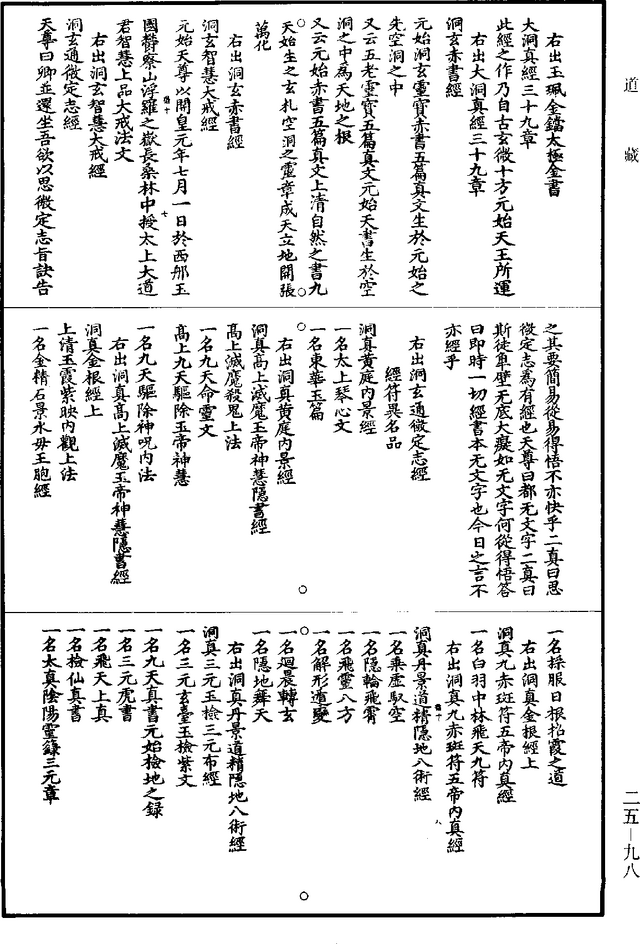 道藏
右出玉珮金鐺太極金書
大洞真經三十九章
此經之作乃自古玄微十方元始天王所運
右出大洞真經三十九章
洞玄赤書經
元始洞玄靈寶赤書五篇真文生於元始之
先空洞之中
又云五老靈寶五篇真文元始天書生於空
洞之中為天地之根
又云元始赤書五篇真文上清自然之書九
天始生之玄札空洞之靈章成天立地開張
萬化
右出洞玄赤書經
洞玄智慧大戒經
元始天尊以開皇元年七月一日於西那玉
國欝察山浮羅之嶽長桑林中授太上大道
君智慧上品大戒法文
右出洞玄智慧大戒經
洞玄通微定志經
天尊曰卿並還坐吾欲以思微定志旨訣告
之其要簡易從易得悟不亦快乎二真曰思
微定志為有經也天尊曰都无文字二真曰
斯徒卑𡐦无底大癡如无文字何從得悟答
曰即時一切經書本无文字也今日之言不
亦經乎
右出洞玄通微定志經
經符異名品
洞真黄庭內景經
一名太上琴心文
一名東華玉篇
右出洞真黄庭內景經
洞真高上滅魔玉帝神慧隱書經
高上滅魔殺鬼上法
一名九天命靈文
高上九天驅除玉帝神慧
一名九天驅除神呪內法
右出洞真高上滅魔玉帝神慧隱書經
洞真金根經上
上清玉霞紫映內觀上法
一名金精石景水母玉胞經
一名採服日根招霞之道
右出洞真金根經上
洞真九赤班符五帝內真經
一名白羽中林飛天九符
右出洞真九赤班符五帝內真經
洞真丹景道精隱地八術經
一名乘虛馭空
一名隱輪飛霄
一名飛靈八方
一名解形遁變
一名迴晨轉玄
一名隱地舞天
右出洞真丹景道精隱地八術經
洞真三元玉檢三元布經
一名三元玄臺玉檢紫文
一名九天真書元始檢地之錄
一名三元虎書
一名飛天上真
一名檢仙真書
一名太真陰陽靈籙三元章
二五—九八